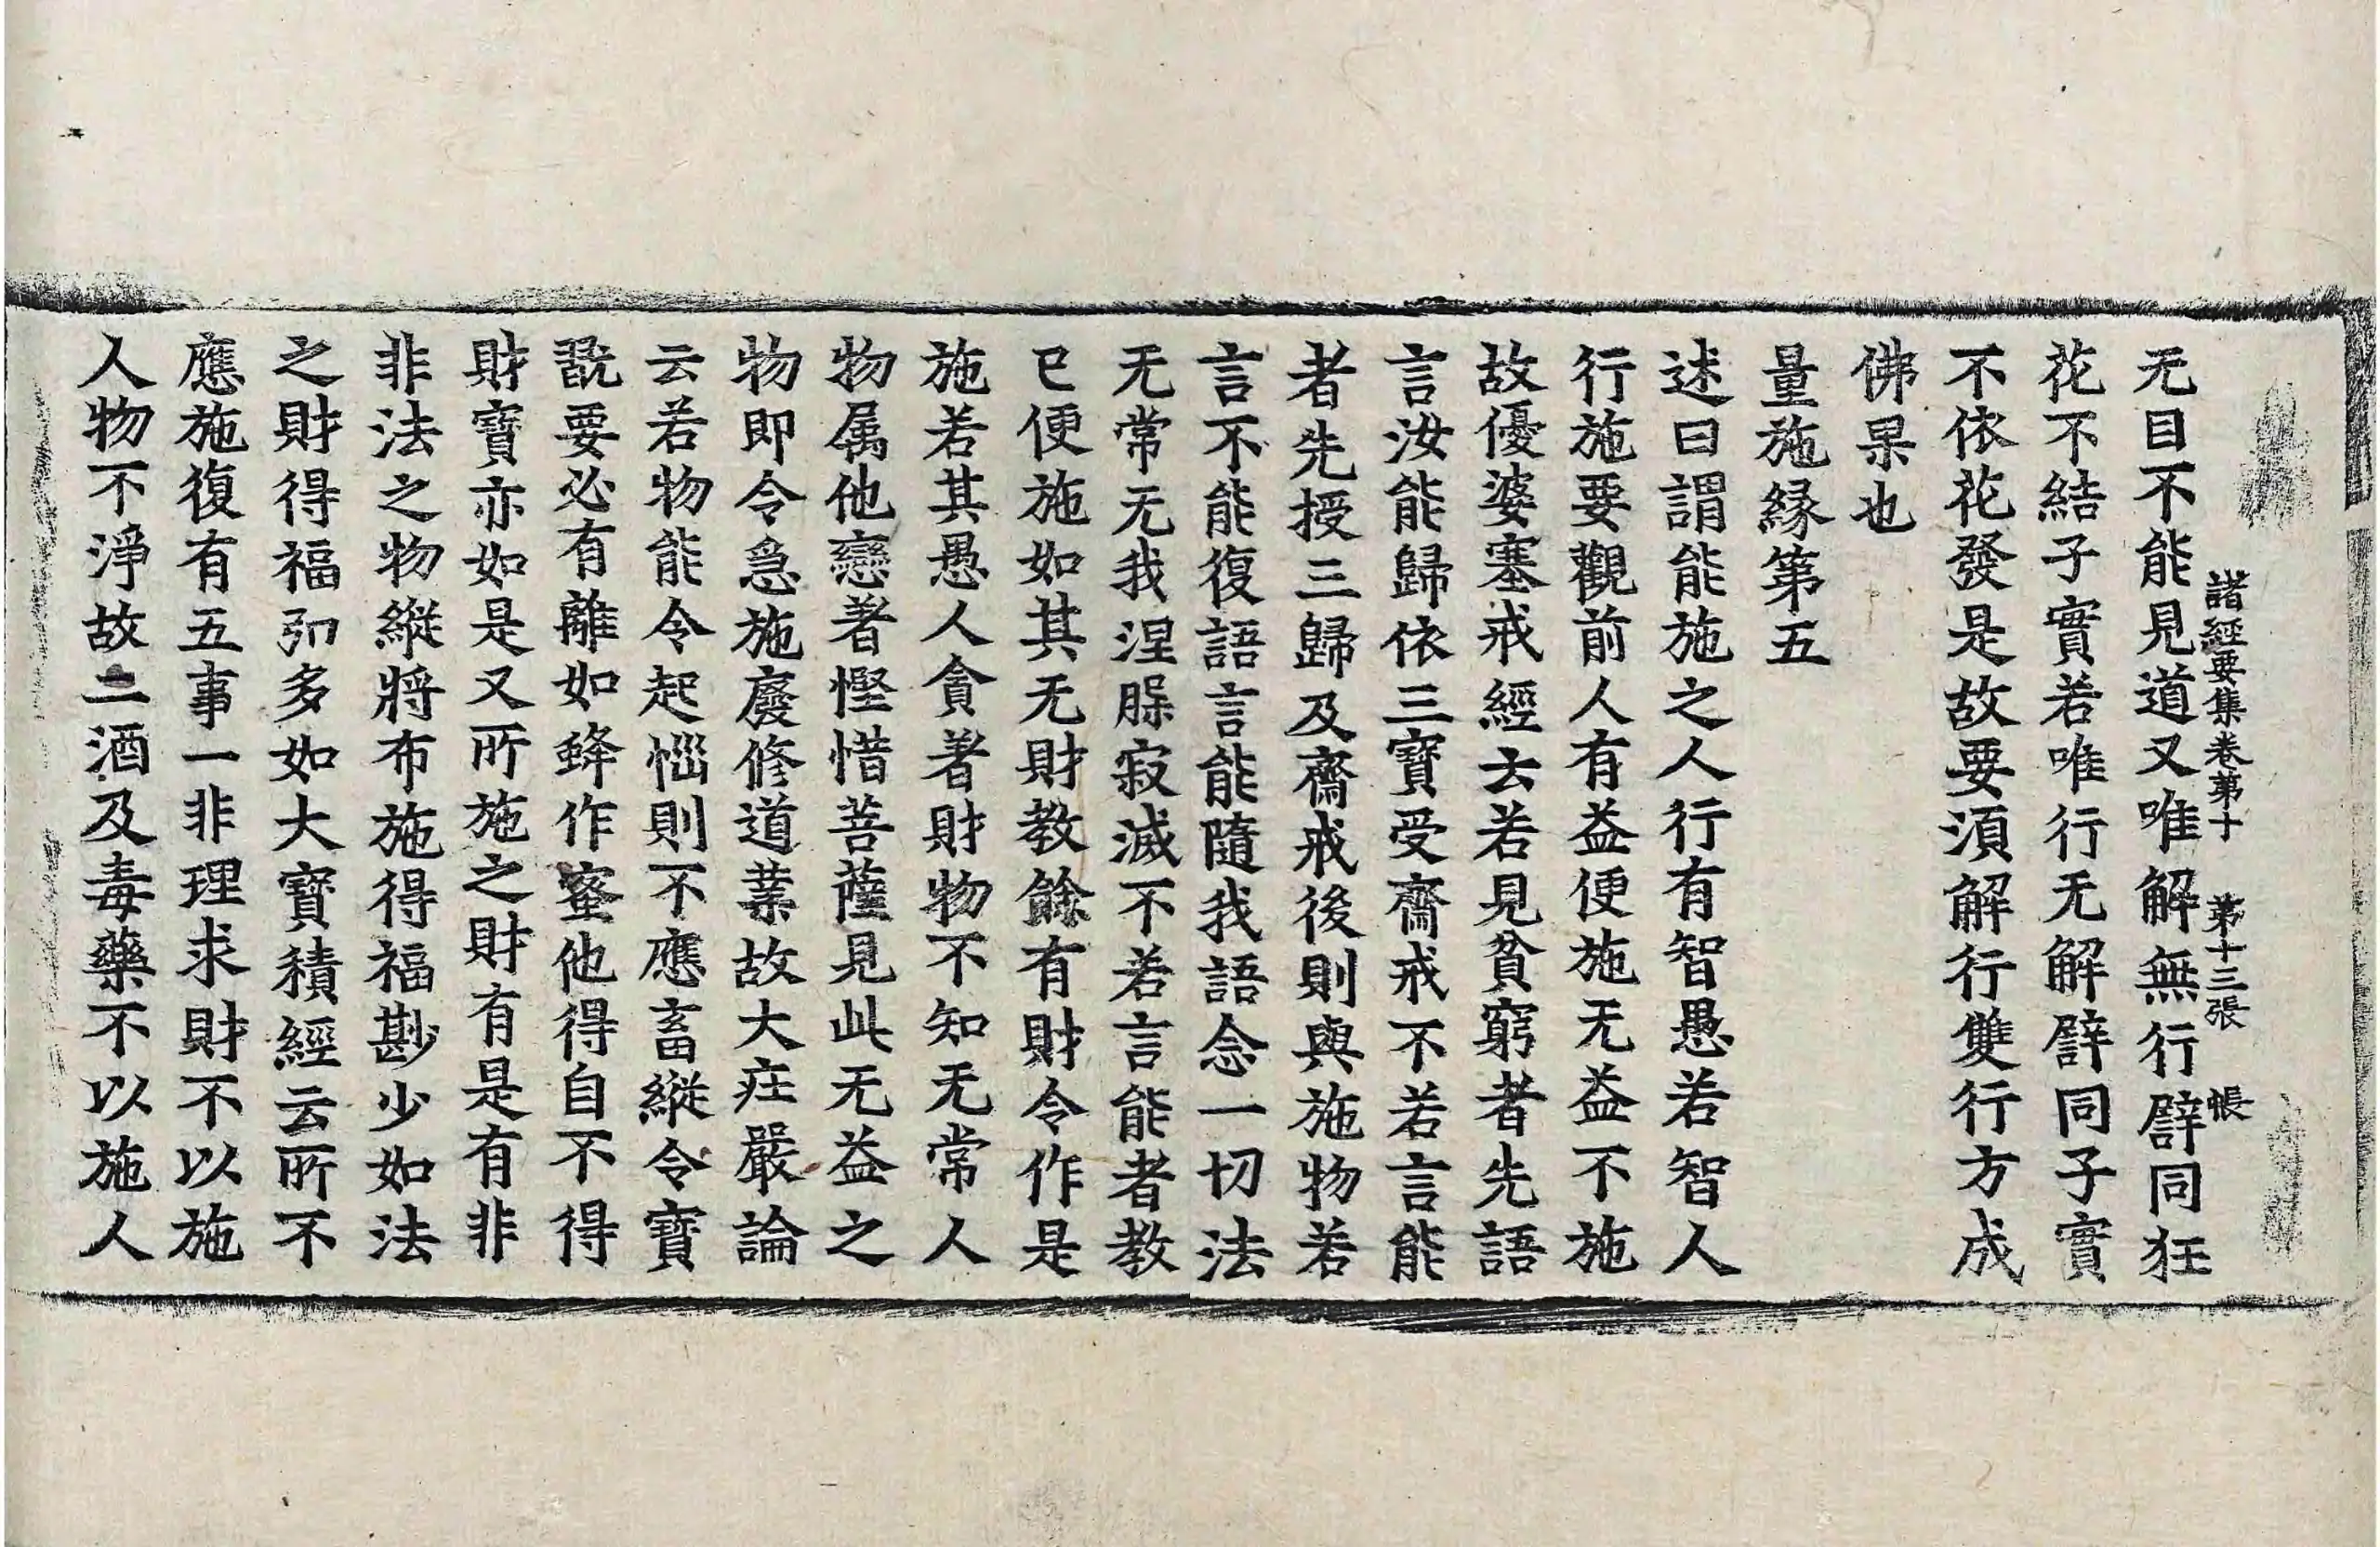 諸經要集卷第十 第十三張 帳
无目不能見道又唯解無行譬同狂
花不結子實若唯行无解譬同子實
不依花發是故要須解行雙行方成
佛果也
量施緣第五
述曰謂能施之人行有智愚若智人
行施要觀前人有益便施无益不施
故優婆塞戒經云若見貧窮者先語
言汝能歸依三寶受齋戒不若言能
者先授三歸及齋戒後則與施物若
言不能復語言能隨我語念一切法
无常无我涅槃寂滅不若言能者教
已便施如其无財教餘有財令作是
施若其愚人貪著財物不知无常人
物属他戀著慳惜菩薩見此无益之
物即令急施廢修道業故大莊嚴論
云若物能令起惱則不應畜縱令寶
翫要必有離如蜂作蜜他得自不得
財寶亦如是又所施之財有是有非
非法之物縱將布施得福尠少如法
之財得福弘多如大寶積經云所不
應施復有五事一非理求財不以施
人物不淨故二酒及毒藥不以施人